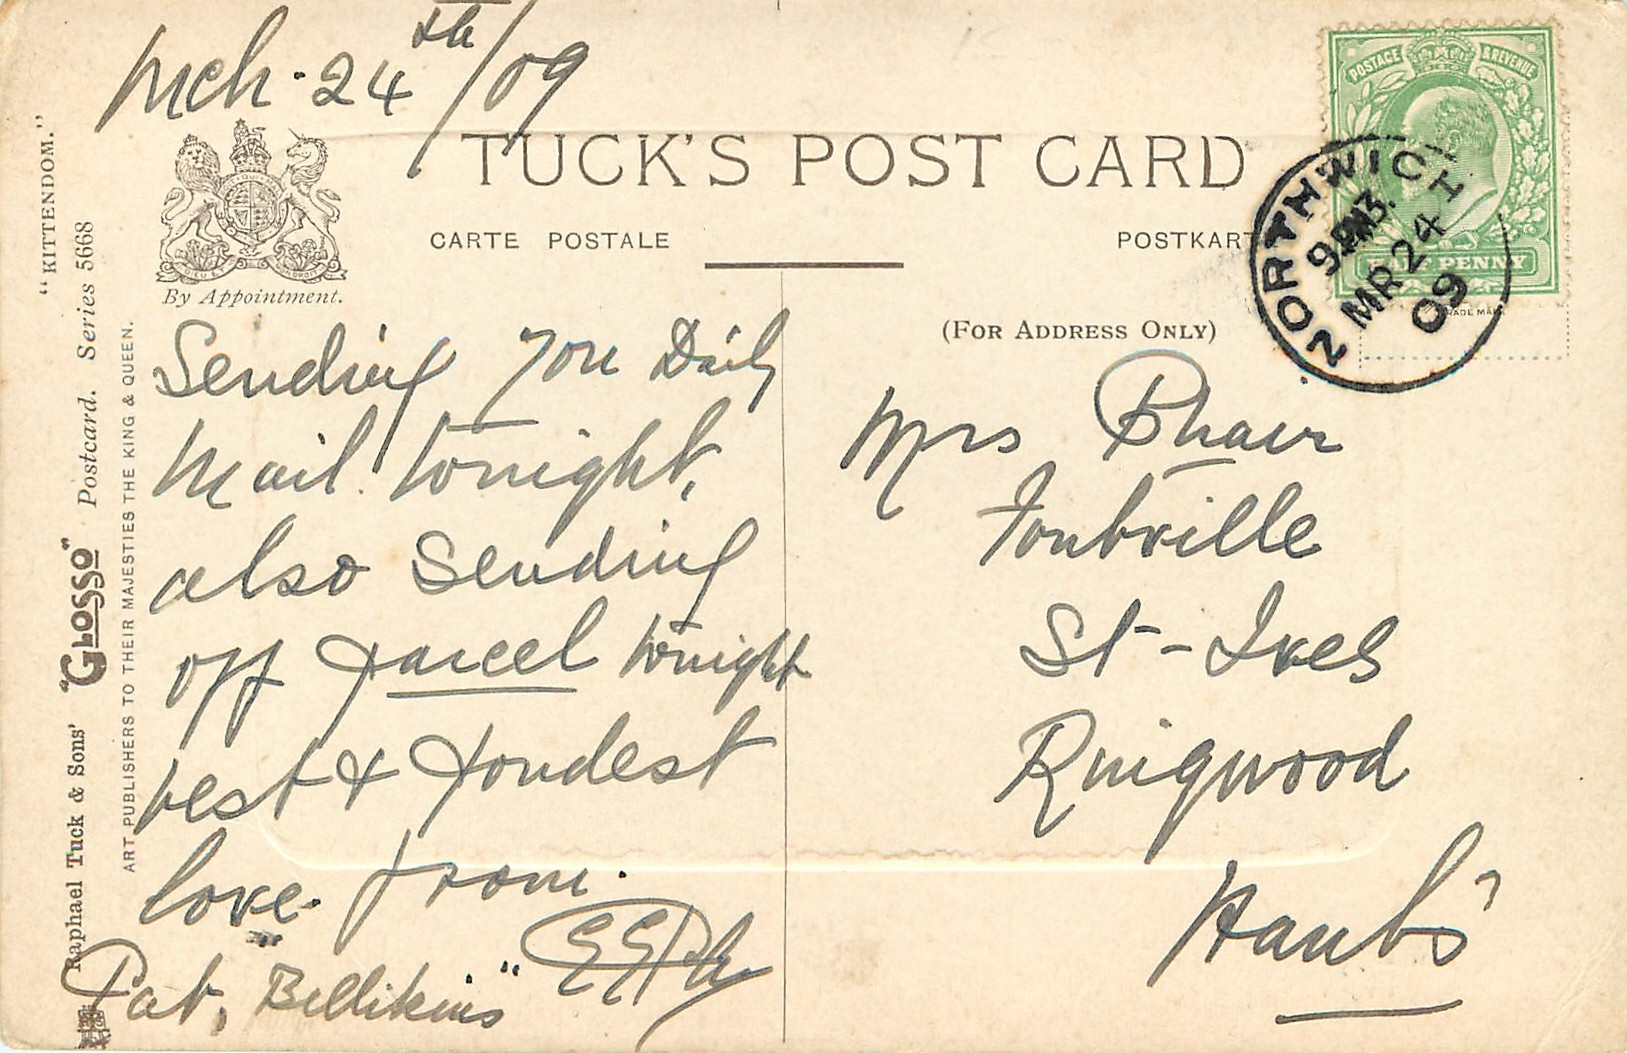 Mch. 24th/09
TUCK'S POST CARD
CARTE POSTALE
POSTKART
By Appointment.
(FOR ADDRESS ONLY)
POSTAGE & REVENUE
HALF PENNY
NORTHWICH
9 PM
MR 24
09
"KITTENDOM."
Raphael Tuck & Sons' "GLOSSO" Postcard. Series 5668
ART PUBLISHERS TO THEIR MAJESTIES THE KING & QUEEN.
Sending you Daily
Mail tonight,
also sending
off parcel tonight
best & fondest
love from.
Pat, "Billikins"
Mrs Phair
St-Ives
Ringwood
Hants